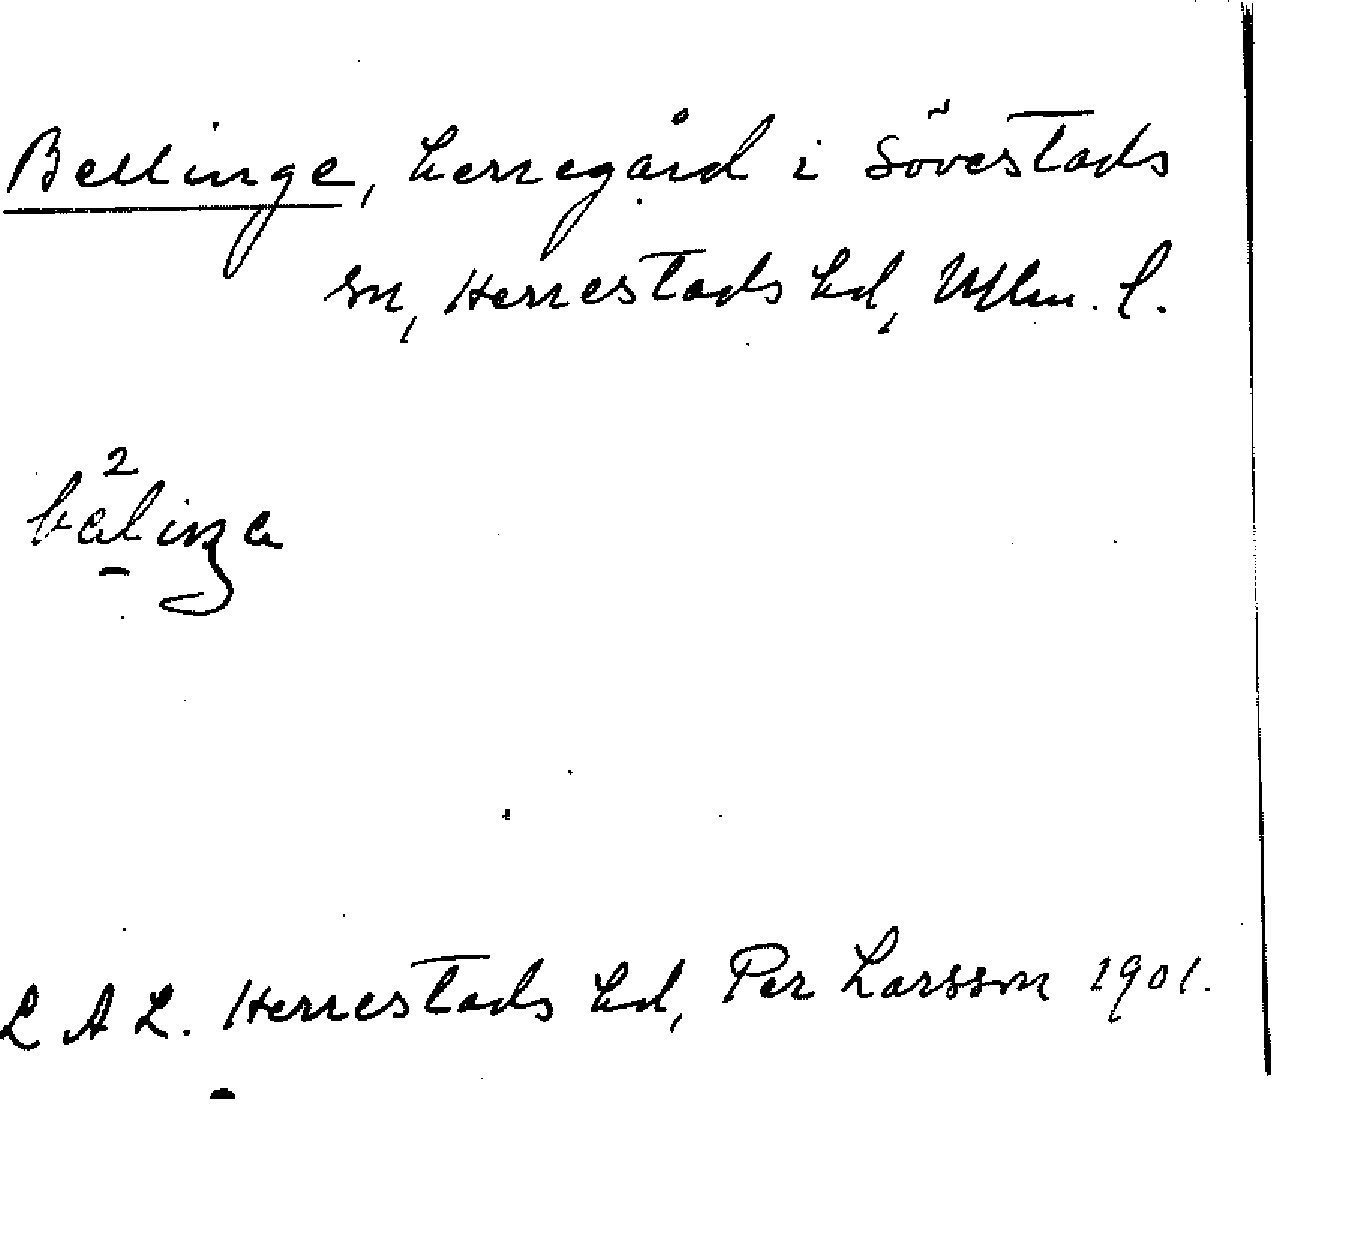 Bellinge, herregård i Sövestads
sn, Herrestads hd, Mlm. l.
2
L A L. Herrestads hd, Per Larsson 1901.